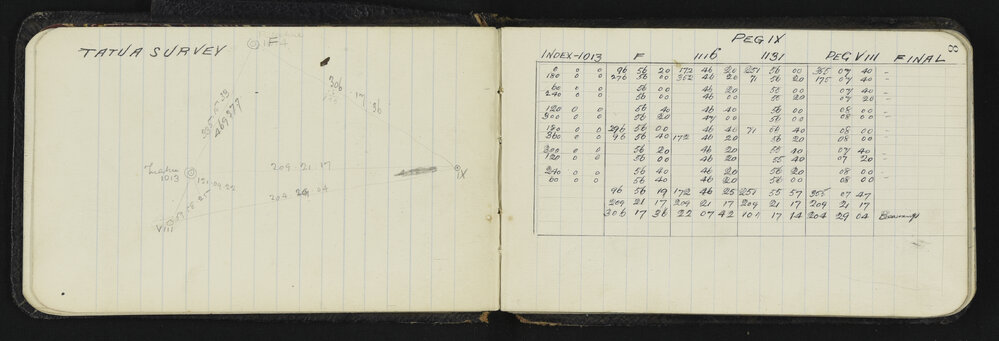 TATUA SURVEY
F
306 17 36
469277
209 . 21 . 17
1013
IX
204 . 29 . 04
VIII
8
PEG IX
INDEX-1013 F 1116 1131 PEG VIII FINAL
0 0 0 96 56 20 172 46 20 251 56 00 355 07 40
180 0 0 276 56 00 352 46 20 71 56 20 175 07 40
60 0 0 56 00 46 20 56 00 07 40
240 0 0 56 00 46 00 56 20 07 20
120 0 0 56 40 46 40 56 00 08 00
300 0 0 56 20 47 00 56 00 08 00
180 0 0 296 56 00 46 40 71 40 08 00
360 0 0 96 56 40 172 46 20 56 20 08 00
300 0 0 56 20 46 20 55 40 07 40
120 0 0 56 00 46 00 55 40 07 20
240 0 0 56 40 46 20 56 20 08 00
60 0 0 56 40 46 20 56 00 08 00
96 56 19 172 46 25 251 55 57 355 07 47
209 21 17 209 21 17 209 21 17 209 21 17
306 17 36 22 07 42 101 17 14 204 29 04 Bearings